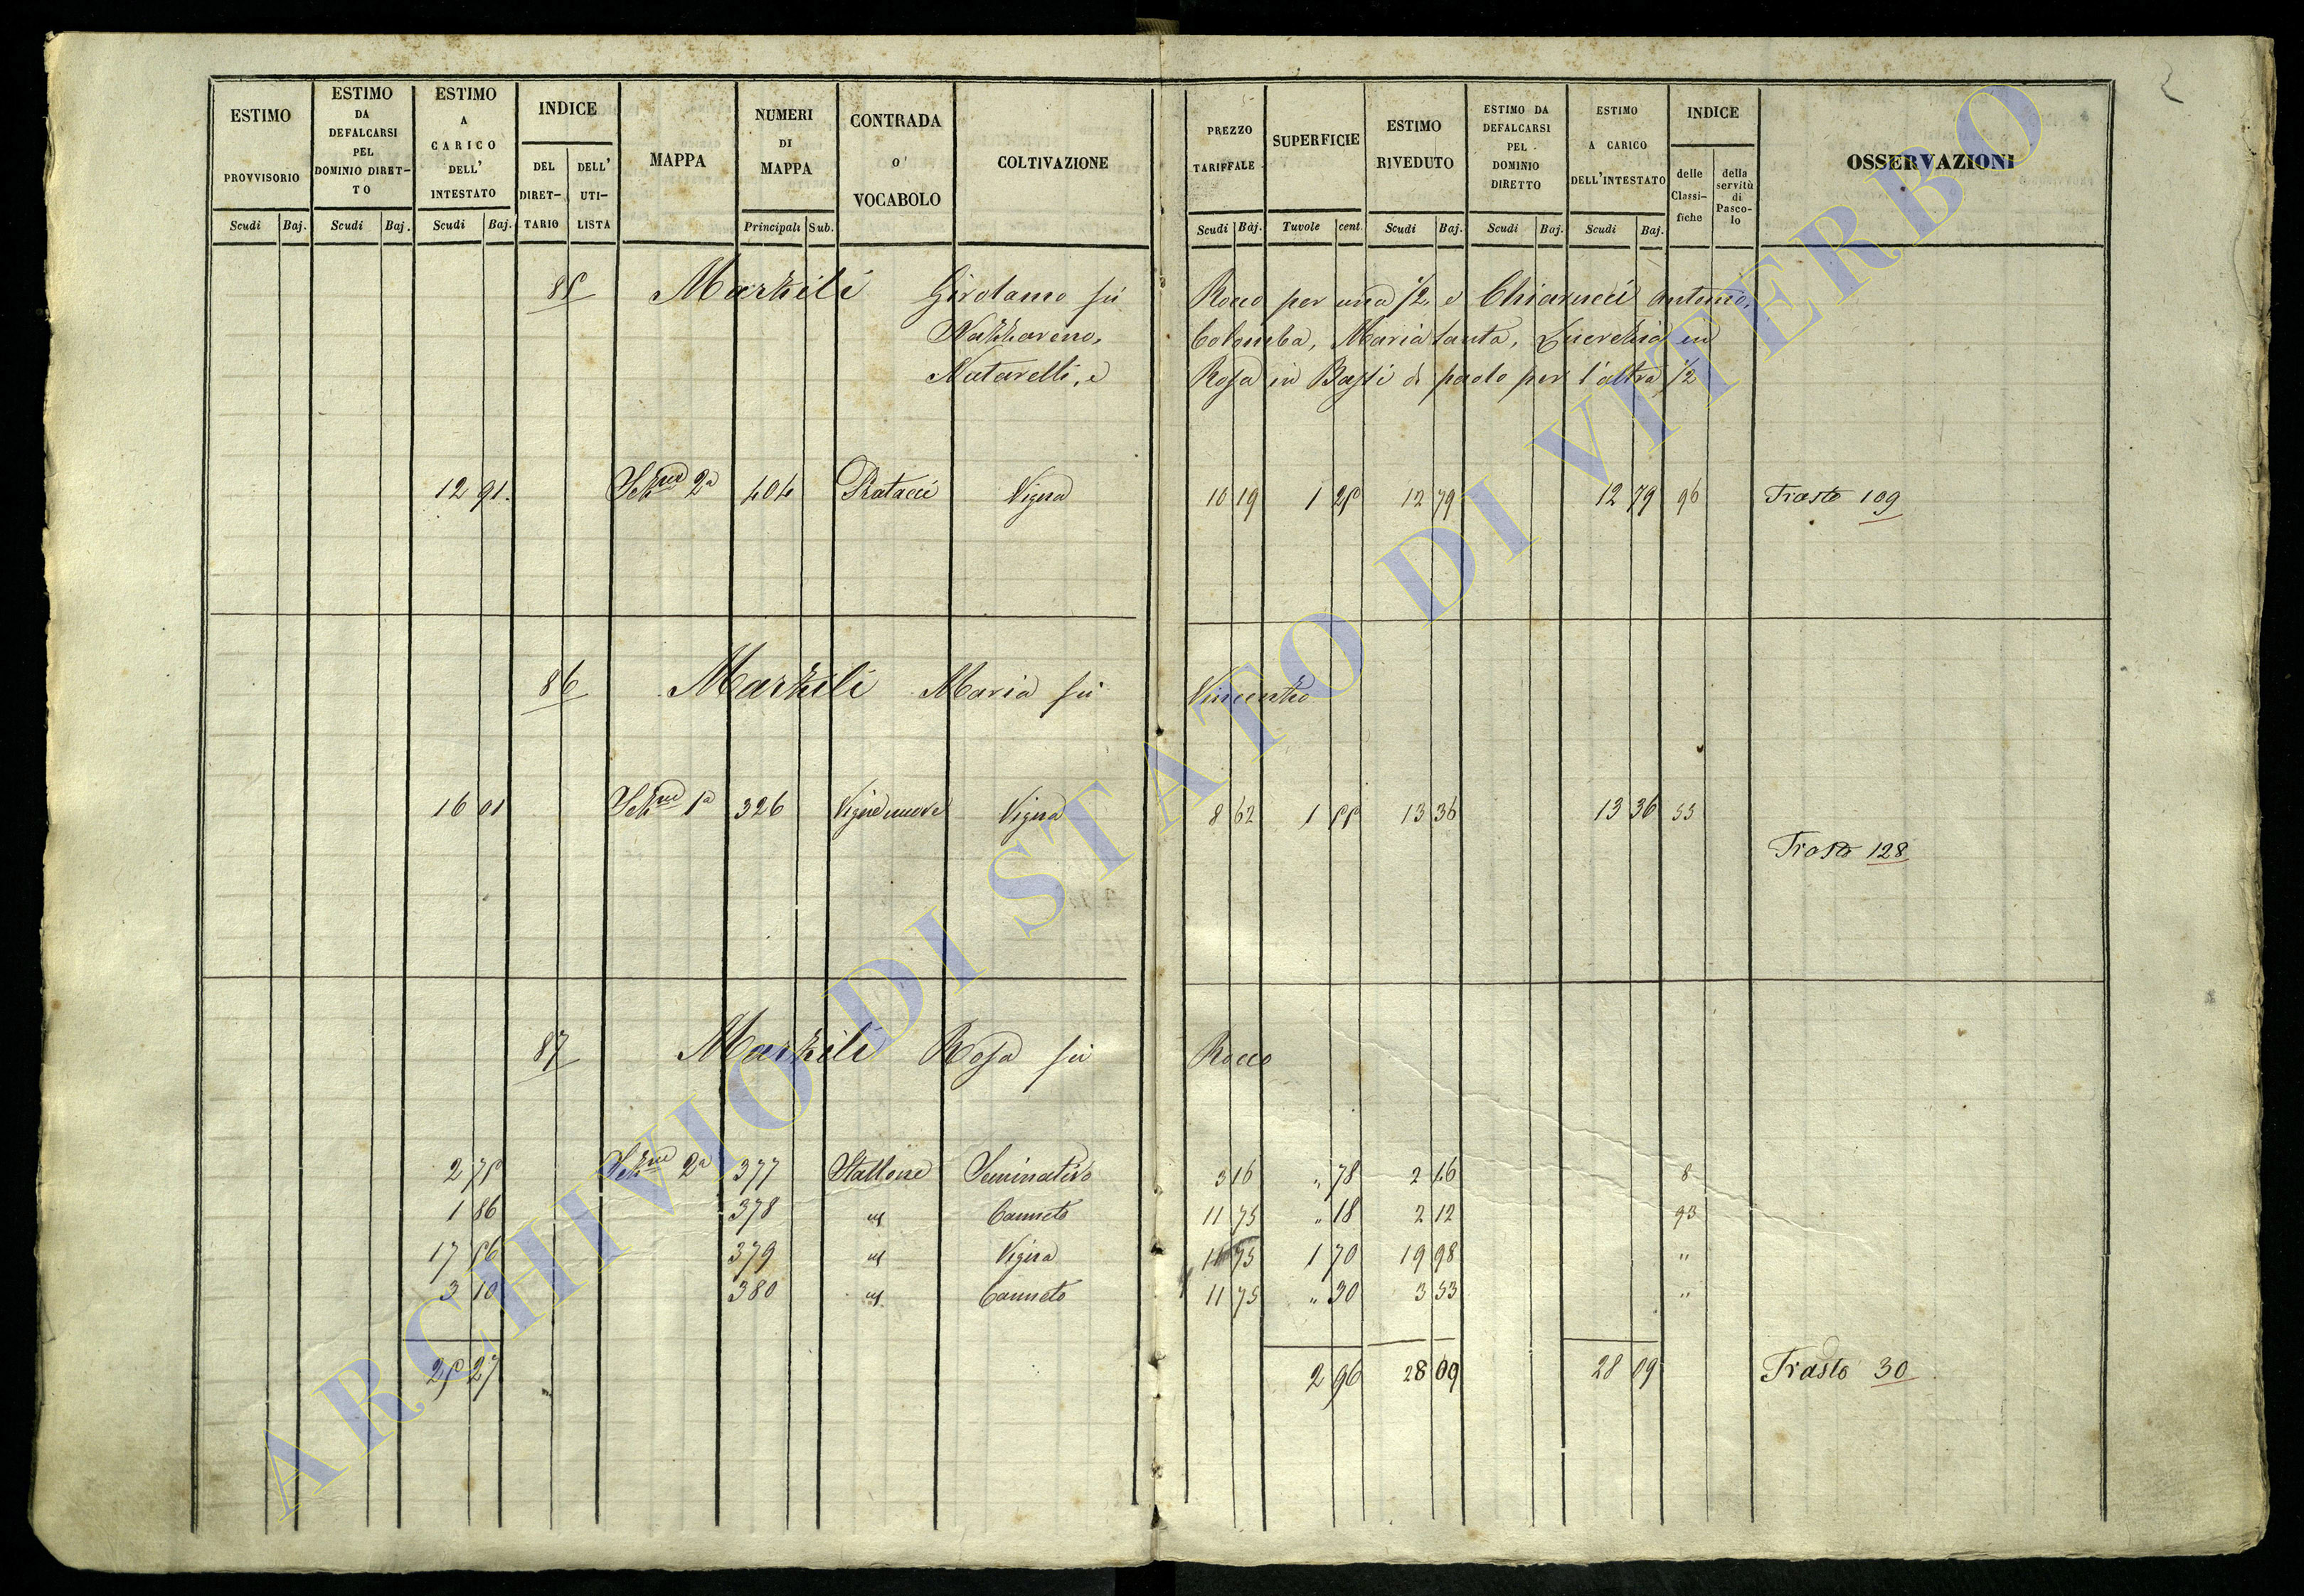 ESTIMO PROVVISORIO Scudi Baj.
ESTIMO DA DEFALCARSI PEL DOMINIO DIRET-TO Scudi Baj.
ESTIMO A CARICO DELL' INTESTATO Scudi Baj.
INDICE DEL DIRET-TARIO DELL' UTI-LISTA
MAPPA
NUMERI DI MAPPA Principali Sub.
CONTRADA o' VOCABOLO
COLTIVAZIONE
PREZZO TARIFFALE Scudi Baj.
SUPERFICIE Tavole cent.
ESTIMO RIVEDUTO Scudi Baj.
ESTIMO DA DEFALCARSI PEL DOMINIO DIRETTO Scudi Baj.
ESTIMO A CARICO DELL'INTESTATO Scudi Baj.
INDICE delle Classi-fiche della servitù di Pasco-lo
OSSERVAZIONI
2
85 Marzili Girolamo fu Rocco per una 1/2, e Chiarucci Antonio,
Nazzareno, Colomba, Maria Santa, Lucrezia in
Natarelli, e Rosa in Basti di paolo per l'altra 1/2
12 91. Sezne 2a 404 Pratacci Vigna 10 19 1 25 12 79 12 79 96 Trasto 109
86 Marzili Maria fu Vincenzo
16 01 Sezne 1a 326 Vigne nuove Vigna 8 62 1 55 13 36 13 36 55
Trasto 128
87 Marzili Rosa fu Rocco
2 75 Sezne 2a 377 Stallone Seminativo 3 16 " 78 2 46 8
1 86 378 Canneto 11 75 " 18 2 12 93
17 56 379 Vigna 11 75 1 70 19 98 "
3 10 380 Canneto 11 75 " 30 3 53 "
25 27 2 96 28 09 28 09 Trasto 30
ARCHIVIO DI STATO DI VITERBO